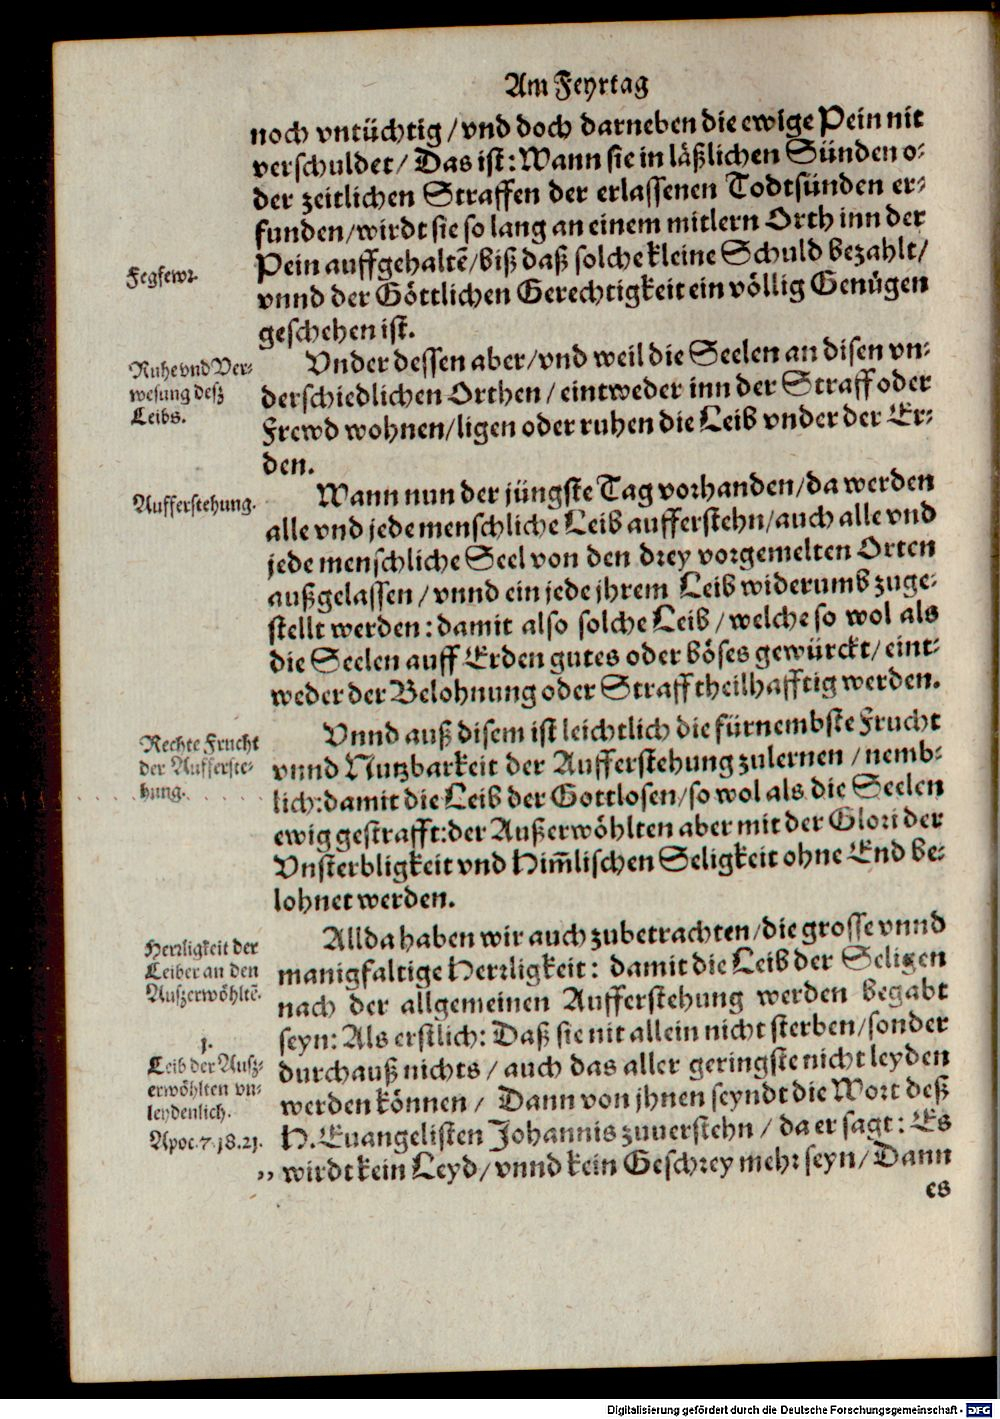 Am Feyrtag
noch vntüchtig / vnd doch darneben die ewige Pein nit
verschuldet / Das ist: Wann sie in läßlichen Sünden o-
der zeitlichen Straffen der erlassenen Todtsünden er-
funden / wirdt sie so lang an einem mitlern Orth inn der
Pein auffgehaltē / biß daß solche kleine Schuld bezahlt /
vnnd der Göttlichen Gerechtigkeit ein völlig Genügen
geschehen ist.
Fegfewr.
Vnder dessen aber / vnd weil die Seelen an disen vn-
derschiedlichen Orthen / eintweder inn der Straff oder
Frewd wohnen / ligen oder ruhen die Leib vnder der Er-
den.
Ruhe vnd Ver-
wesung deß
Leibs.
Wann nun der jüngste Tag vorhanden / da werden
alle vnd jede menschliche Leib aufferstehn / auch alle vnd
jede menschliche Seel von den drey vorgemelten Orten
außgelassen / vnnd ein jede jhrem Leib widerumb zuge-
stellt werden: damit also solche Leib / welche so wol als
die Seelen auff Erden gutes oder böses gewürckt / eint-
weder der Belohnung oder Straff theilhafftig werden.
Aufferstehung.
Vnnd auß disem ist leichtlich die fürnembste Frucht
vnnd Nutzbarkeit der Aufferstehung zulernen / nemb-
lich: damit die Leib der Gottlosen / so wol als die Seelen
ewig gestrafft: der Außerwöhlten aber mit der Glori der
Vnsterbligkeit vnd Him̃lischen Seligkeit ohne End be-
lohnet werden.
Rechte Frucht
der Aufferste-
hung.
Allda haben wir auch zubetrachten / die grosse vnnd
manigfaltige Herrligkeit: damit die Leib der Seligen
nach der allgemeinen Aufferstehung werden begabt
seyn: Als erstlich: Daß sie nit allein nicht sterben / sonder
durchauß nichts / auch das aller geringste nicht leyden
werden können / Dann von jhnen seyndt die Wort deß
H. Euangelisten Johannis zuuerstehn / da er sagt: Es
„ wirdt kein Leyd / vnnd kein Geschrey mehr seyn / Dann
es
Herrligkeit der
Leiber an den
Außerwöhltē.
1.
Leib der Auß-
erwöhlten vn-
leydenlich.
Apoc. 7. 18. 21.
Digitalisierung gefördert durch die Deutsche Forschungsgemeinschaft - DFG